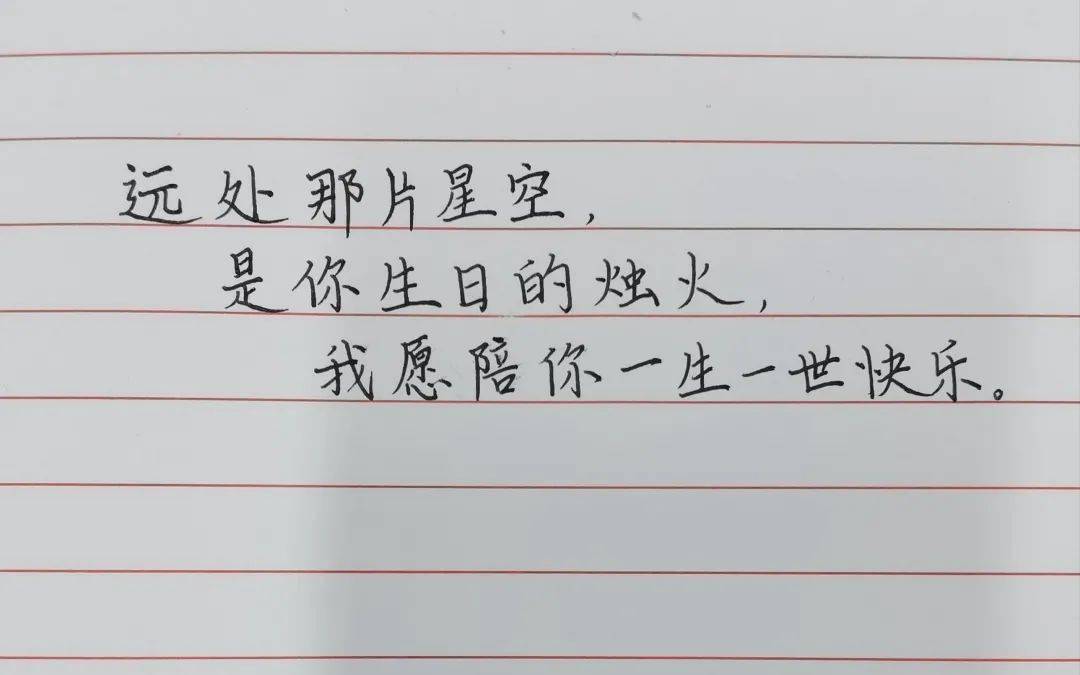 远处那片星空，
是你生日的烛火，
我愿陪你一生一世快乐。